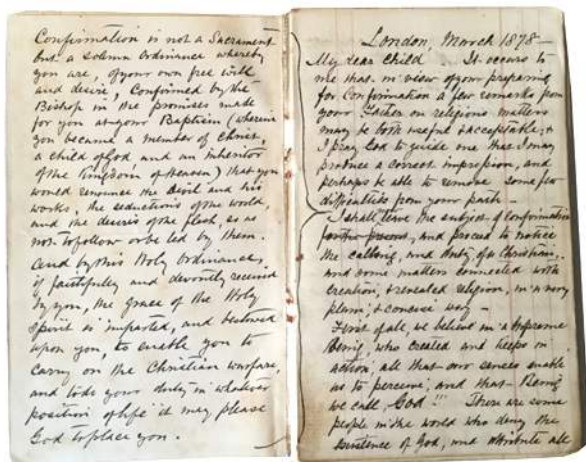 Confirmation is not a Sacrament
but a solemn Ordinance whereby
you are, of your own free will
and desire, confirmed by the
Bishop in the promises made
for you at your Baptism (wherein
you became a member of Christ,
a child of God and an inheritor
of the Kingdom of Heaven) that you
would renounce the devil and his
works, the seductions of the world,
and the desires of the flesh, so as
not to follow or be led by them.
And by this Holy Ordinance,
if faithfully and devoutly received
by you, the grace of the Holy
Spirit is imparted, and bestowed
upon you, to enable you to
carry on the Christian warfare,
and to do your duty in whatever
position of life it may please
God to place you.
London, March 1878—
My dear Child . It occurs to
me that in view of your preparing
for Confirmation a few remarks from
your Father on religious matters
may be both useful & acceptable; &
I pray God to guide me that I may
produce a correct impression, and
perhaps be able to remove some few
difficulties from your path —
I shall leave the subject of Confirmation
for the present, and proceed to notice
the calling, and duty, of a Christian,
and some matters connected with
creation, & revealed religion, in a very
plain, & concise way —
First of all, we believe in a Supreme
Being, who created and keeps in
action, all that our senses enable
us to perceive, and that Being
we call, God!!! There are some
people in the world who deny the
existence of God, and attribute all